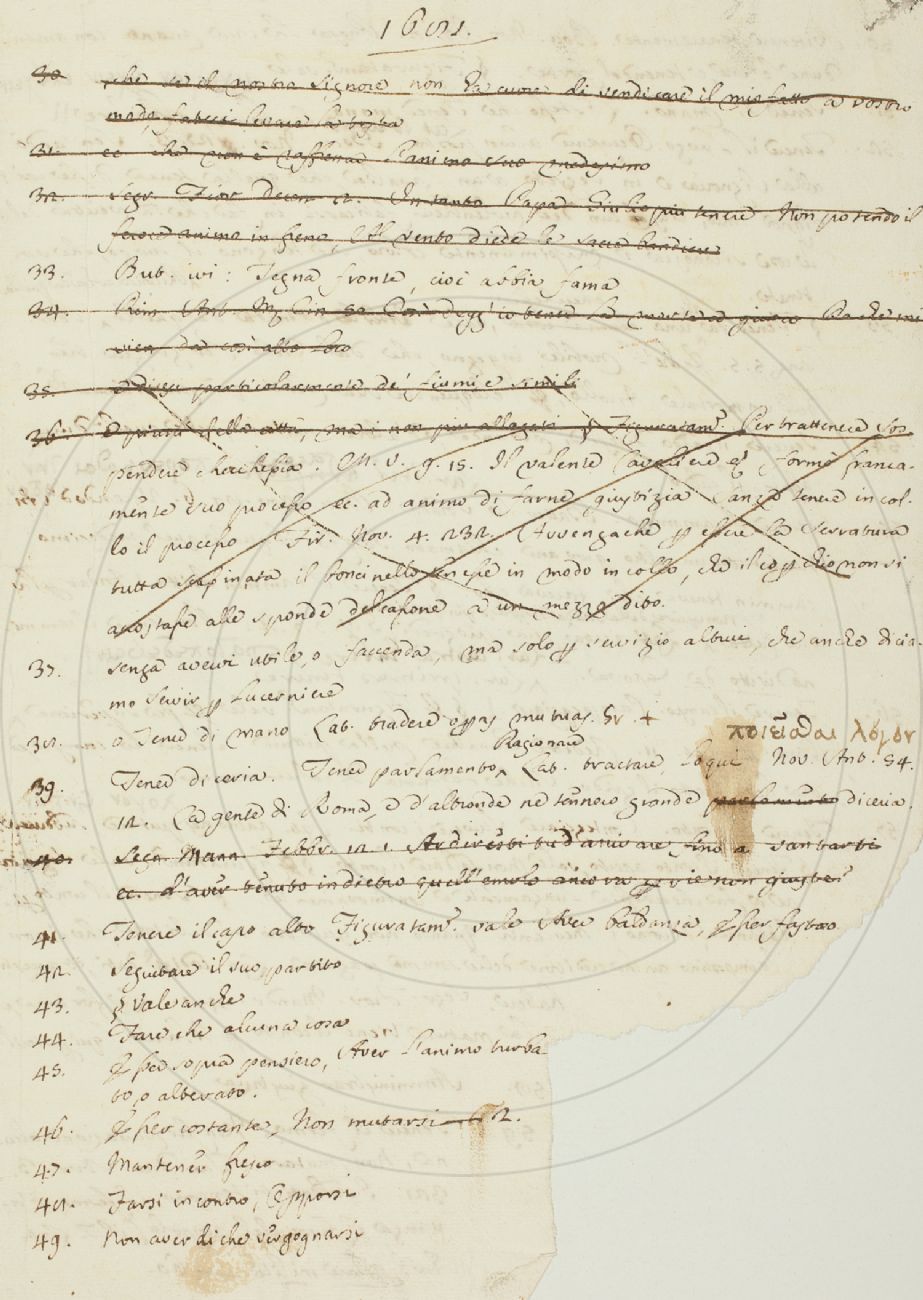 30. che se il nostro Signore non ha cuore di vendicare il misfatto a vostro
modo, fateci levare la testa
31. ec. che non è l'animo suo medesimo
32. Segr. Fior. Decen. 12. Intanto Papa Giulio più tenere Non potendo il
feroce animo in freno, Al vento diede le sacre bandiere
33. But. ivi: Tegna fronte, cioè abbia fama
34. Rim. Ant. 50 Così degg' io tener la morte a gioco Poichè mi
vien da così alto loco
35. e dicesi particolarmente de' fiumi e simili
36. della città, ma i non più allagati § Figuratam. Per trattenere Sos
pendere checchesia. M. V. 9. 15. Il valente Cavaliere formò franca-
mente suo processo ec. ad animo di farne giustizia anzi tenere in col-
lo il processo Fr. Nov. 4. 232. Avvengachè essere la Serratura
tutta il boncinello tenesse in modo in collo, che il non si
accostasse alle sponde del cassone a un mezzo dito.
37. senza avervi utile, o faccenda, ma solo servizio altrui, che anche dicia-
mo Servir Lucerniere
38. o Tener di mano Lat. tradere operas mutuas. Gr. + ποιεῖσθαι λόγον
39. Tener diceria. Tener parlamento, Ragionare Lat. tractare, loqui Nov. Ant. 54.
12. La gente di Roma, e d'altronde ne tennero grande parlamento diceria.
40. Segn. Mann. Febbr. 12. 1. Ardiresti tu d'arrivare fino a vantarti
ec. d'aver tenuto indietro quell'emolo ancora vie non giuste?
41. Tenere il capo alto Figuratam. vale Aver baldanza, Esser fastoso
42. Seguitare il suo partito
43. § Vale anche
44. Fare che alcuna cosa
45. Esser sopra pensiero, Aver l'animo turba
to, o alterato.
46. Esser costante, Non mutarsi 2.
47. Mantener fresco
48. Farsi incontro, Opporsi
49. Non aver di che vergognarsi